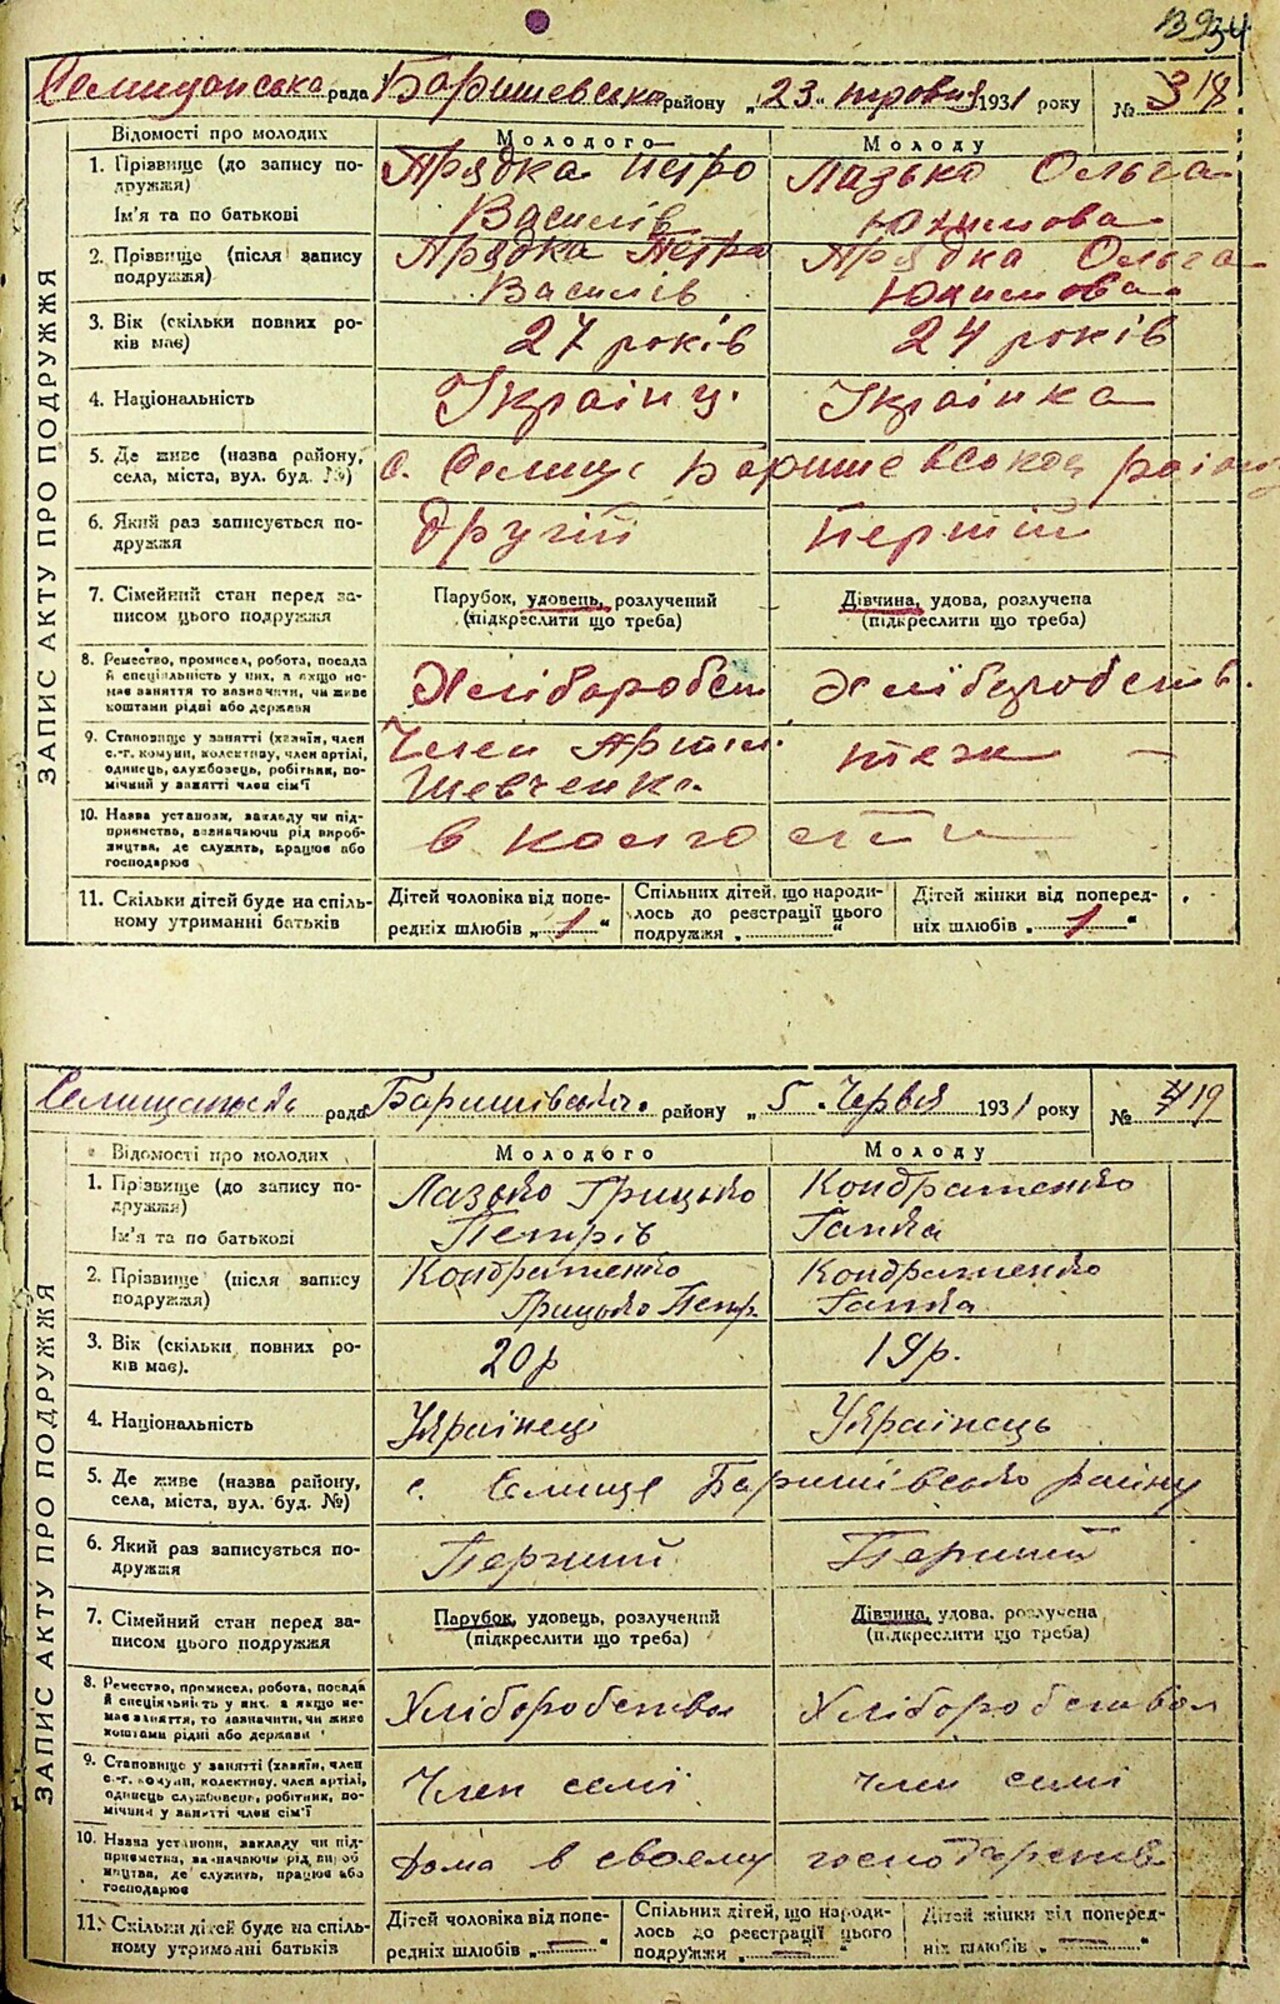 934
Селищанська рада Баришевсько району „23„ травня 1931 року № 18
ЗАПИС АКТУ ПРО ПОДРУЖЖЯ
Відомості про молодих Молодого Молоду
1. Прізвище (до запису по-
дружжя)
Ім'я та по батькові
Прядка Петро
Василів
Лазько Ольга
Юхимова
2. Прізвище (після запису
подружжя)
Прядка Петро
Василів
Прядка Ольга
Юхимова
3. Вік (скільки повних ро-
ків має)
27 років
24 років
4. Національність
Українц.
Українка
5. Де живе (назва району,
села, міста, вул. буд. №)
с. Селище Баришевського району
6. Який раз записується по-
дружжя
Другій
Перший
7. Сімейний стан перед за-
писом цього подружжя
Парубок, удовець, розлучений
(підкреслити що треба)
Дівчина, удова, розлучена
(підкреслити що треба)
8. Ремество, промисел, робота, посада
й спеціяльність у них, а якщо не-
має заняття то зазначити, чи живе
коштами рідні або держави
Хліборобств
Хліборобств.
9. Становище у занятті (хазяїн, член
с.-г. комуни, колективу, член артілі,
одинець, службовець, робітник, по-
мічний у занятті член сім'ї
Член Артіл.
Шевченка
теж —
10. Назва установи, закладу чи під-
приємства, зазначаючи рід вироб-
ництва, де служить, працює або
господарює
в колгоспи
11. Скільки дітей буде на спіль-
ному утриманні батьків
Дітей чоловіка від попе-
редніх шлюбів „ 1 “
Спільних дітей, що народи-
лось до реєстрації цього
подружжя „ “
Дітей жінки від поперед-
ніх шлюбів „ 1 “
рада Баришівсько. району „5„ Червня 1931 року № 19
ЗАПИС АКТУ ПРО ПОДРУЖЖЯ
Відомості про молодих Молодого Молоду
1. Прізвище (до запису по-
дружжя)
Ім'я та по батькові
Лазько Грицько
Петрів
Кондратенко
Ганка
2. Прізвище (після запису
подружжя)
Кондратенко
Грицько Петр.
Кондратенко
Ганка
3. Вік (скільки повних ро-
ків має).
20р
19р.
4. Національність
Українець
Українець
5. Де живе (назва району,
села, міста, вул. буд. №)
с. Селище Баришівсько району
6. Який раз записується по-
дружжя
Перший
Перший
7. Сімейний стан перед за-
писом цього подружжя
Парубок, удовець, розлучений
(підкреслити що треба)
Дівчина, удова, розлучена
(підкреслити що треба)
8. Ремество, промисел, робота, посада
й спеціяльність у них, а якщо не-
має заняття, то зазначити, чи живе
коштами рідні або держави
Хліборобство
Хліборобство
9. Становище у занятті (хазяїн, член
с.-г. комуни, колективу, член артілі,
одинець службовець, робітник, по-
мічний у занятті член сім'ї
Член семї
член семі
10. Назва установи, закладу чи під-
приємства, зазначаючи рід вироб-
ництва, де служить, працює або
господарює
дома в своєму господарстві
11. Скільки дітей буде на спіль-
ному утриманні батьків
Дітей чоловіка від попе-
редніх шлюбів „ — “
Спільних дітей, що народи-
лось до реєстрації цього
подружжя „ — “
Дітей жінки від поперед-
ніх шлюбів „ — “